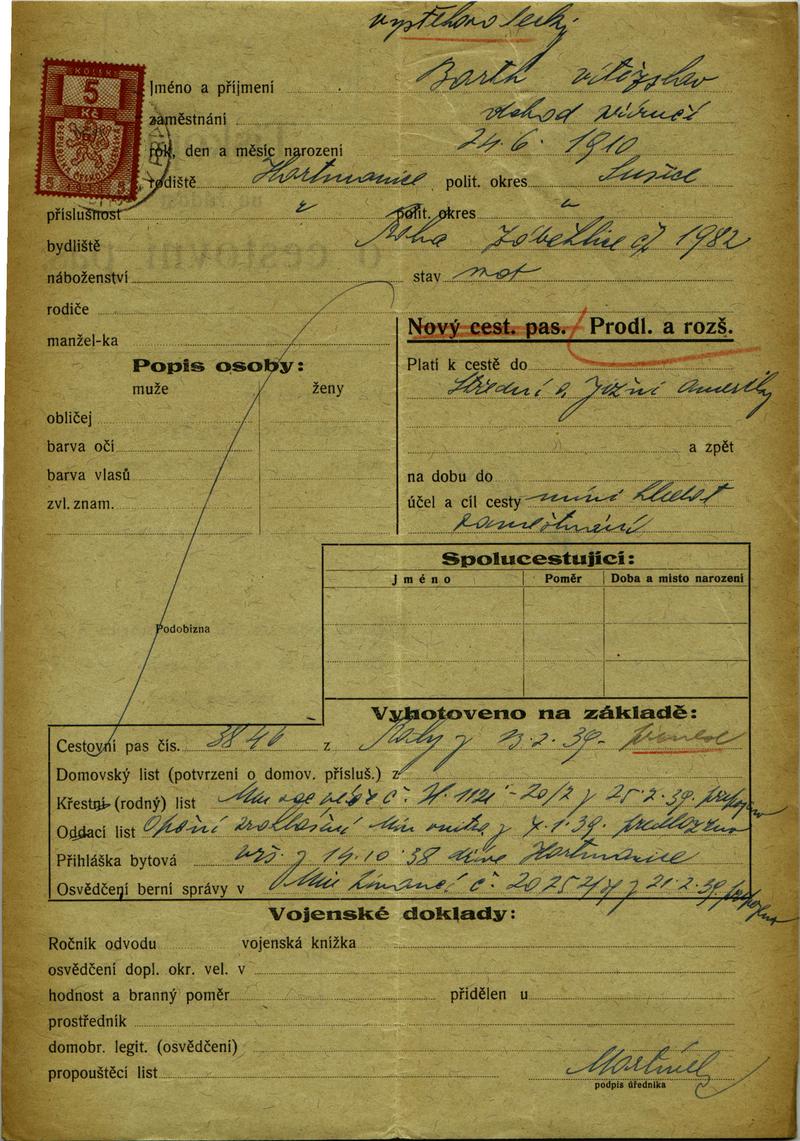 vystěhovalecký
KOLEK
5
Kč
REPUBLIKA ČESKOSLOVENSKÁ
5 5
Jméno a příjmení Barth Vítězslav
zaměstnání obchod příručí
rok, den a měsíc narození 24. 6. 1910
rodiště Hartmanice polit. okres Sušice
příslušnost " polit. okres "
bydliště Praha Záběhlice čp 1982
náboženství stav
rodiče
manžel-ka
Nový cest. pas. / Prodl. a rozš.
Popis osoby:
muže ženy
obličej
barva očí
barva vlasů
zvl. znam.
Platí k cestě do
Střední a Jižní Ameriky
a zpět
na dobu do
účel a cíl cesty míní hledat
zaměstnání
Podobizna
Spolucestující:
Jméno Poměr Doba a misto narození
Vyhotoveno na základě:
Cestovní pas čís. 3846 z Prahy z 13. 2. 39
Domovský list (potvrzení o domov. přísluš.) z
Křestní (rodný) list Min soc péče č. 20/2 z 25. 2. 39. připojeno
Oddací list Opční prohlášení Min vnitra z 7. 1. 39. předloženo
Přihláška bytová z 14. 10. 38 dříve Hartmanice
Osvědčení berní správy v Min financí č. z 21. 2. 39 připojeno
Vojenské doklady:
Ročník odvodu vojenská knížka
osvědčení dopl. okr. vel. v
hodnost a branný poměr přidělen u
prostředník
domobr. legit. (osvědčení)
propouštěcí list
podpis úředníka